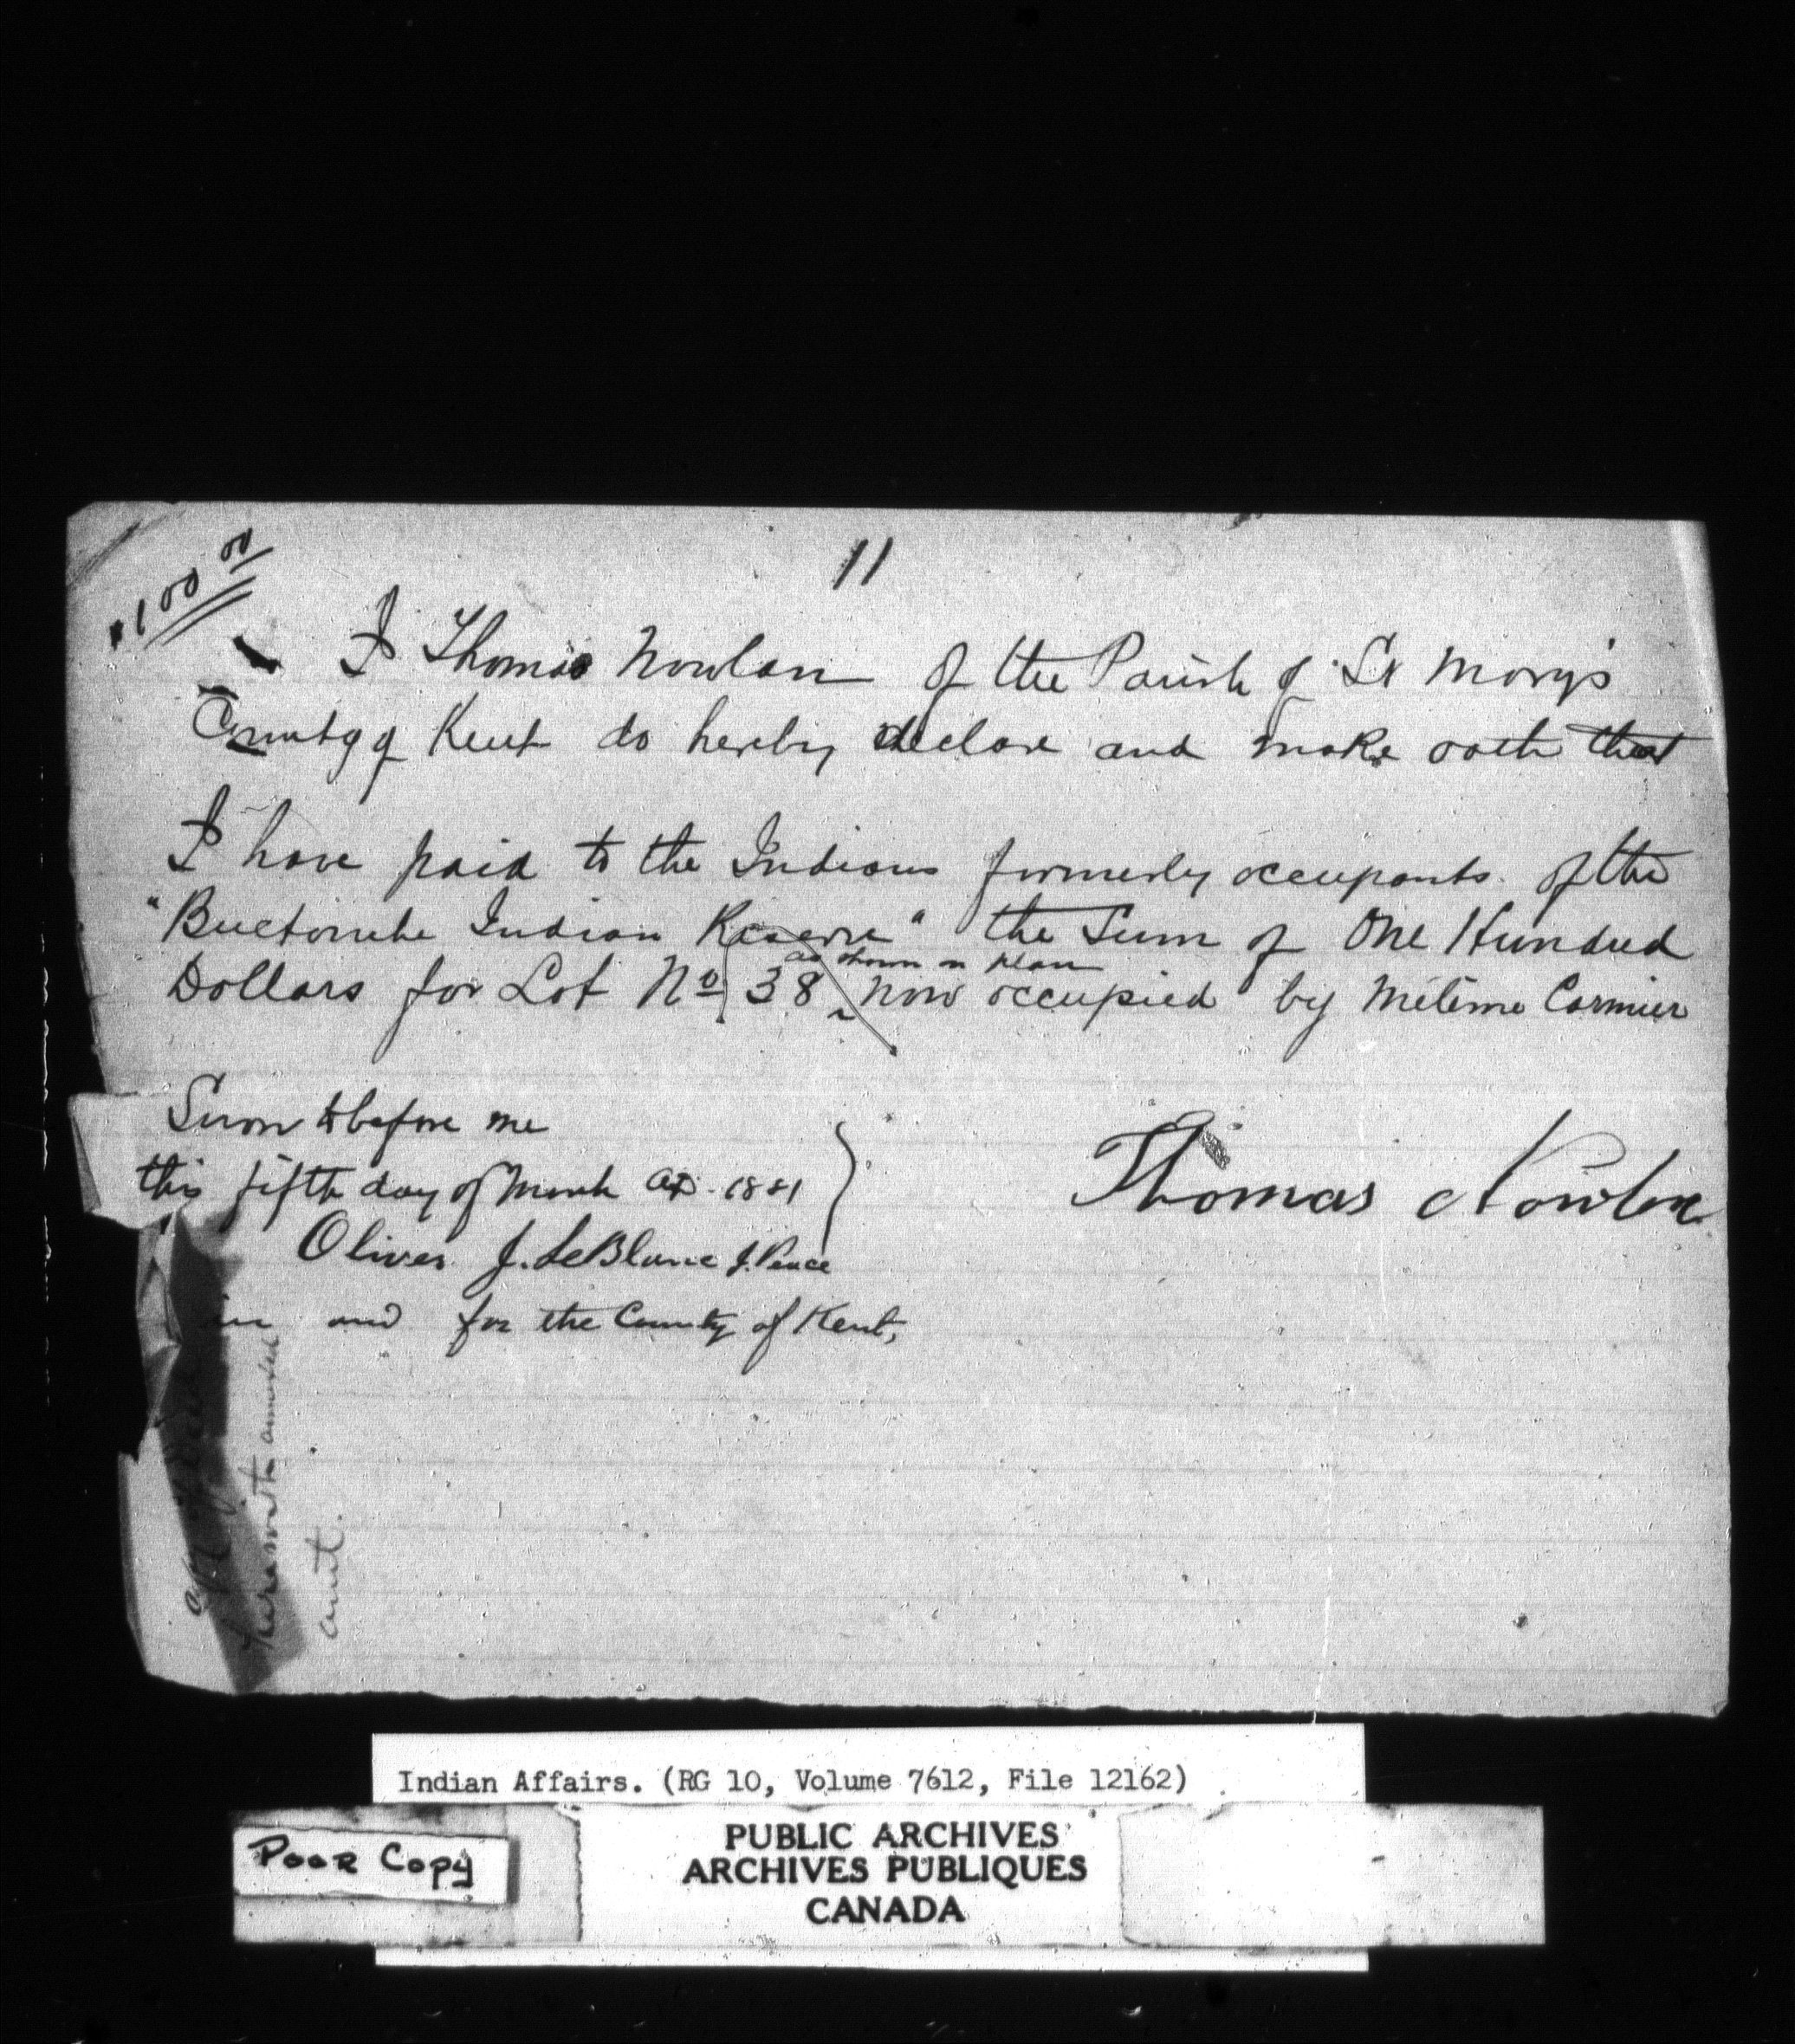 11
$100.00
I Thomas Nowlan of the Parish of St Mary's
County of Kent do hereby declare and make oath that
I have paid to the Indians formerly occupants of the
"Buctouche Indian Reserve" the Sum of One Hundred
as shown on plan
Dollars for Lot No 38 now occupied by Mélème Cormier
Sworn to before me
this fifth day of March AD. 1881
Oliver J. LeBlanc J. Peace
in and for the County of Kent,
Thomas Nowlan
amount.
Indian Affairs. (RG 10, Volume 7612, File 12162)
Poor Copy
PUBLIC ARCHIVES
ARCHIVES PUBLIQUES
CANADA